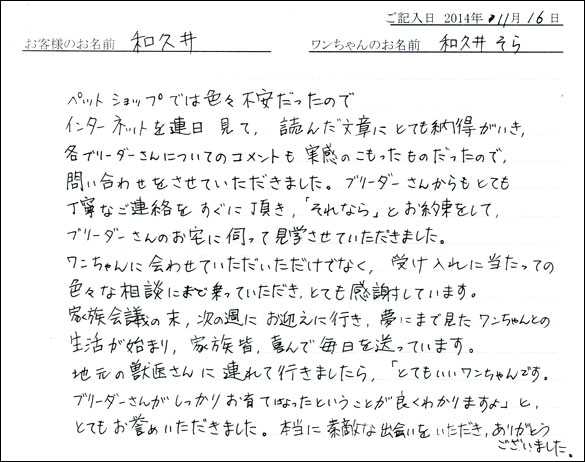 ご記入日 2014年 11月 16日
お客様のお名前 和久井 ワンちゃんのお名前 和久井 そら
ペットショップでは色々不安だったので
インターネットを連日見て、読んだ文章にとても納得がいき、
各ブリーダーさんについてのコメントも実感のこもったものだったので、
問い合わせをさせていただきました。ブリーダーさんからもとても
丁寧なご連絡をすぐに頂き、「それなら」とお約束をして、
ブリーダーさんのお宅に伺って見学させていただきました。
ワンちゃんに会わせていただいただけでなく、受け入れに当たっての
色々な相談にまで乗っていただき、とても感謝しています。
家族会議の末、次の週にお迎えに行き、夢にまで見たワンちゃんとの
生活が始まり、家族皆、喜んで毎日を送っています。
地元の獣医さんに連れて行きましたら、「とてもいいワンちゃんです。
ブリーダーさんがしっかりお育てになったということが良くわかりますよ」と、
とてもお誉めいただきました。本当に素敵な出会いをいただき、ありがとう
ございました。